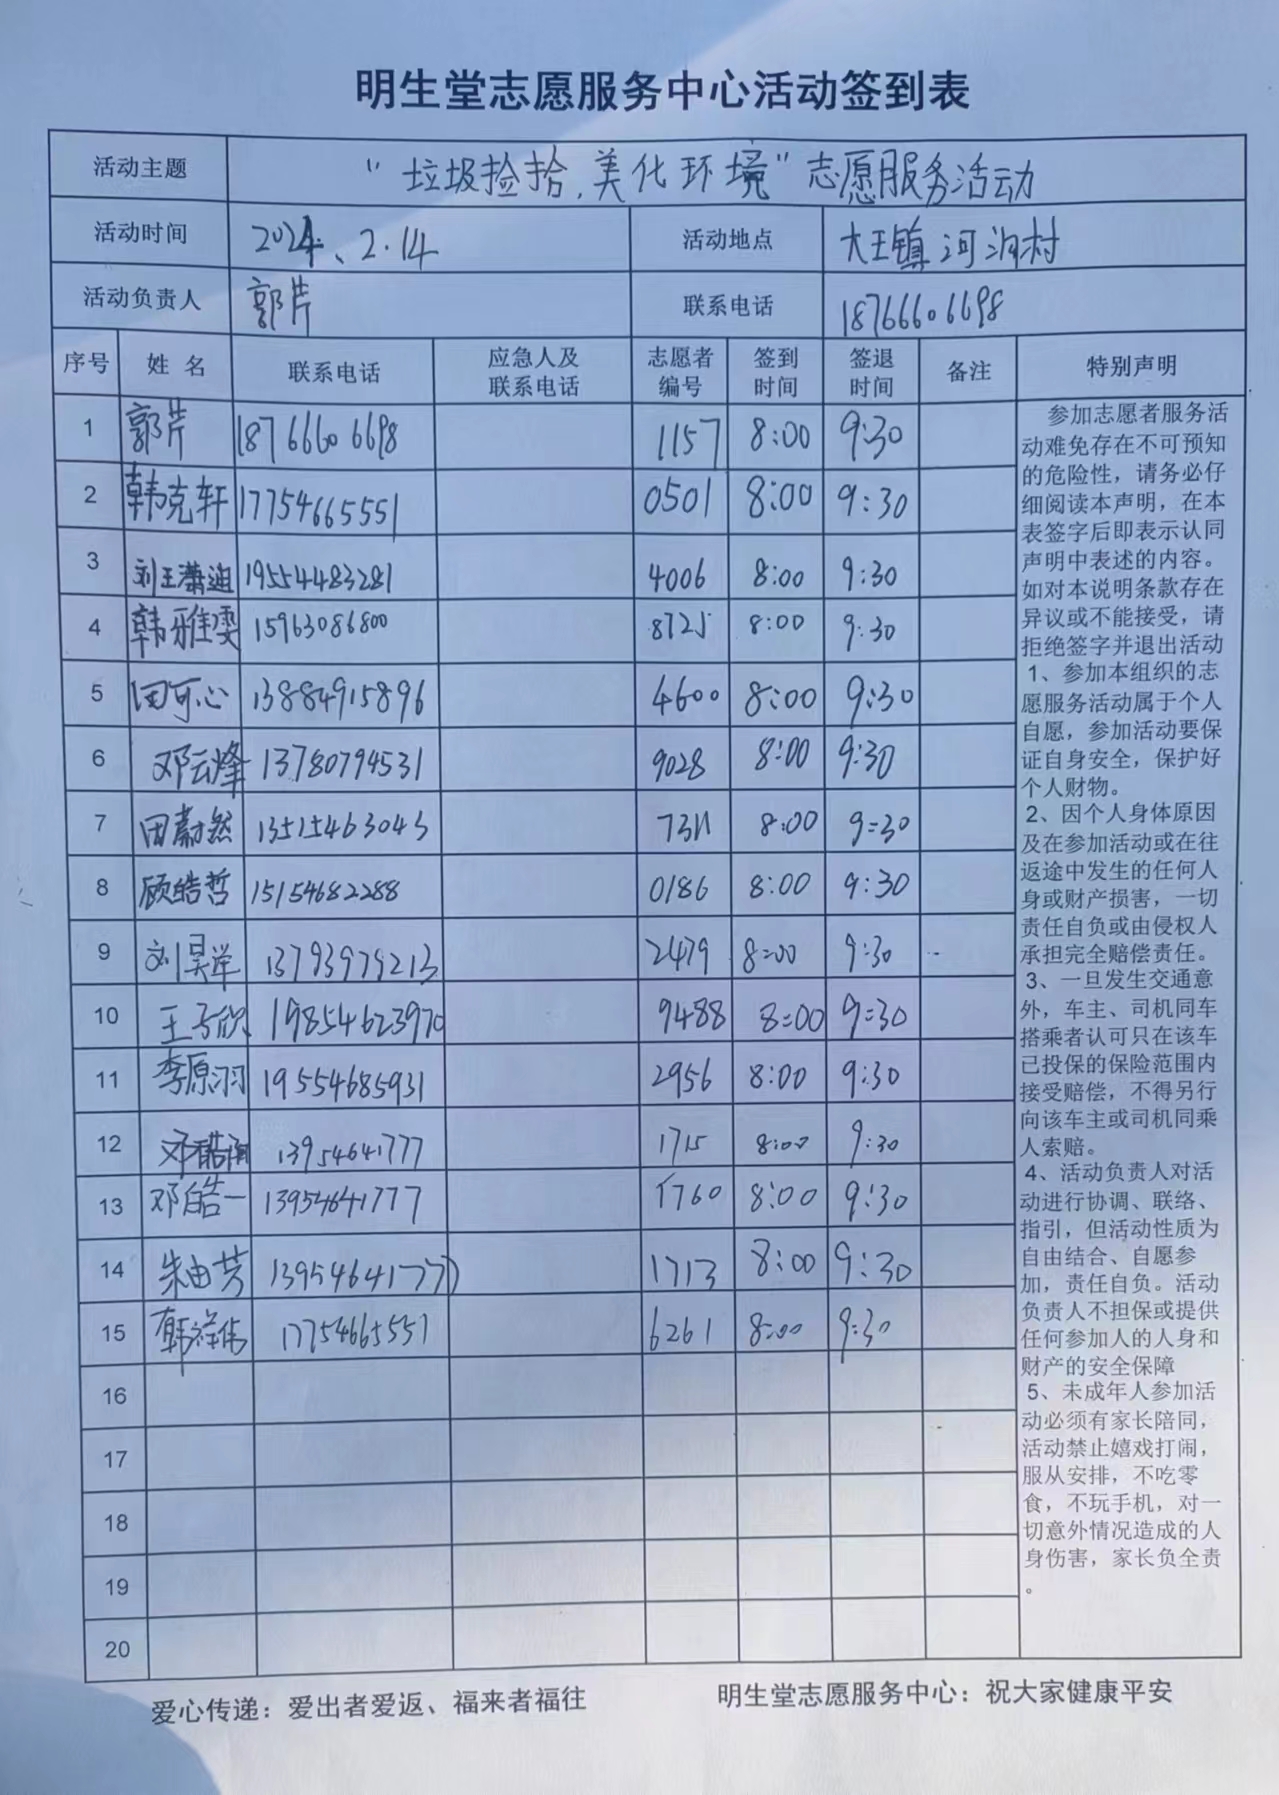 明生堂志愿服务中心活动签到表
活动主题 “垃圾捡拾,美化环境”志愿服务活动
活动时间 2024、2.14 活动地点 大王镇河沟村
活动负责人 郭芹 联系电话 18766606698
序号 姓名 联系电话 应急人及联系电话 志愿者编号 签到时间 签退时间 备注 特别声明
1 郭芹 18766606698 1157 8:00 9:30
2 韩克轩 17754665551 0501 8:00 9:30
3 刘王潇迪 19554483281 4006 8:00 9:30
4 韩雅雯 15963086800 8725 8:00 9:30
5 田可心 13884915896 4600 8:00 9:30
6 邓云烽 13780794531 9028 8:00 9:30
7 田蔚然 13515463043 7311 8:00 9:30
8 顾皓哲 15154682288 0186 8:00 9:30
9 刘昊洋 13793979213 2479 8:00 9:30
10 王子欣 19854623970 9488 8:00 9:30
11 李原羽 19554685931 2956 8:00 9:30
12 邓皓 13954641777 1715 8:00 9:30
13 邓皓一 13954641777 1760 8:00 9:30
14 朱由芳 13954641777 1713 8:00 9:30
15 韩祥伟 17754665551 6261 8:00 9:30
16
17
18
19
20
参加志愿者服务活
动难免存在不可预知
的危险性，请务必仔
细阅读本声明，在本
表签字后即表示认同
声明中表述的内容。
如对本说明条款存在
异议或不能接受，请
拒绝签字并退出活动
1、参加本组织的志
愿服务活动属于个人
自愿，参加活动要保
证自身安全，保护好
个人财物。
2、因个人身体原因
及在参加活动或在往
返途中发生的任何人
身或财产损害，一切
责任自负或由侵权人
承担完全赔偿责任。
3、一旦发生交通意
外，车主、司机同车
搭乘者认可只在该车
已投保的保险范围内
接受赔偿，不得另行
向该车主或司机同乘
人索赔。
4、活动负责人对活
动进行协调、联络、
指引，但活动性质为
自由结合、自愿参
加，责任自负。活动
负责人不担保或提供
任何参加人的人身和
财产的安全保障
5、未成年人参加活
动必须有家长陪同，
活动禁止嬉戏打闹，
服从安排，不吃零
食，不玩手机，对一
切意外情况造成的人
身伤害，家长负全责
。
爱心传递：爱出者爱返、福来者福往 明生堂志愿服务中心：祝大家健康平安